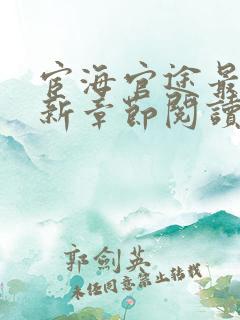 宦海官途最
新章節閱讀
郭劍英
未經同意禁止轉載